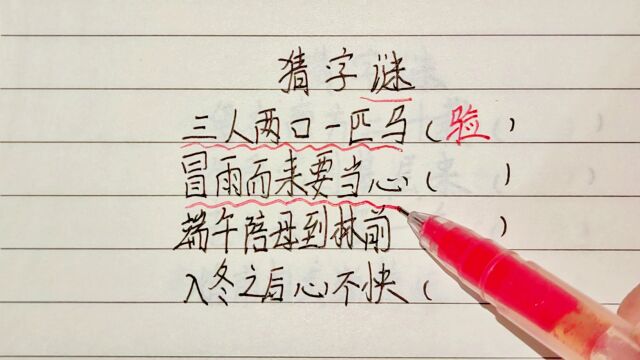 猜字谜
三人两口一匹马(验)
冒雨而来要当心()
端午陪母到林前)
入冬之后心不快(